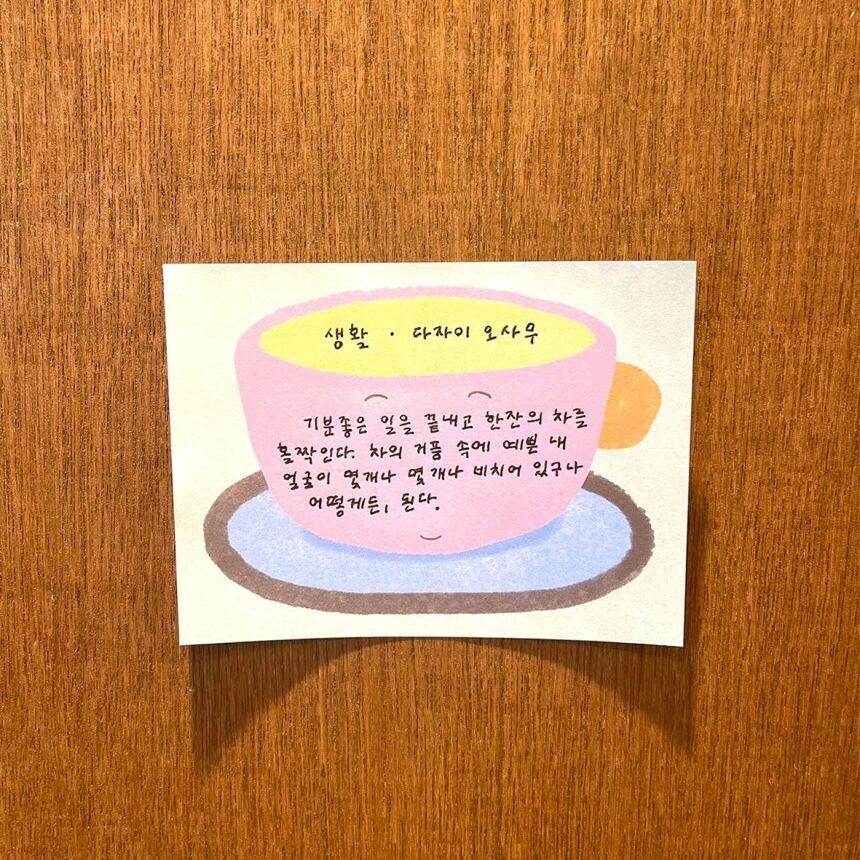 생활 · 다자이 오사무
기분좋은 일을 끝내고 한잔의 차를
홀짝인다. 차의 거품 속에 예쁜 내
얼굴이 몇개나 몇개나 비치어 있구나
어떻게든, 된다.